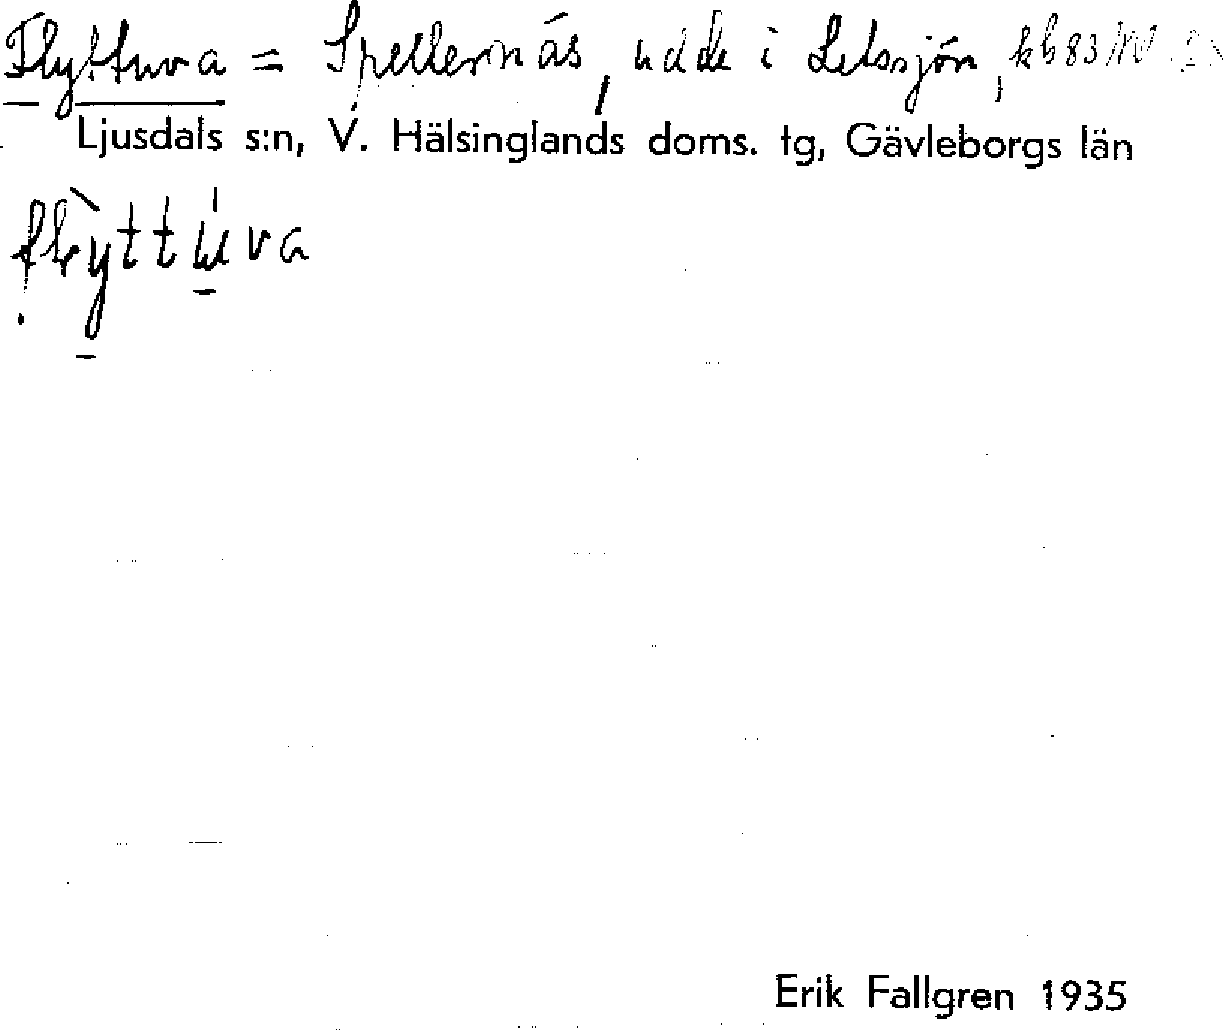 Flyttuva = Spellernäs, udde i Letssjön, kb 83
Ljusdals s:n, V. Hälsinglands doms. tg, Gävleborgs län
flyttuva
Erik Fallgren 1935